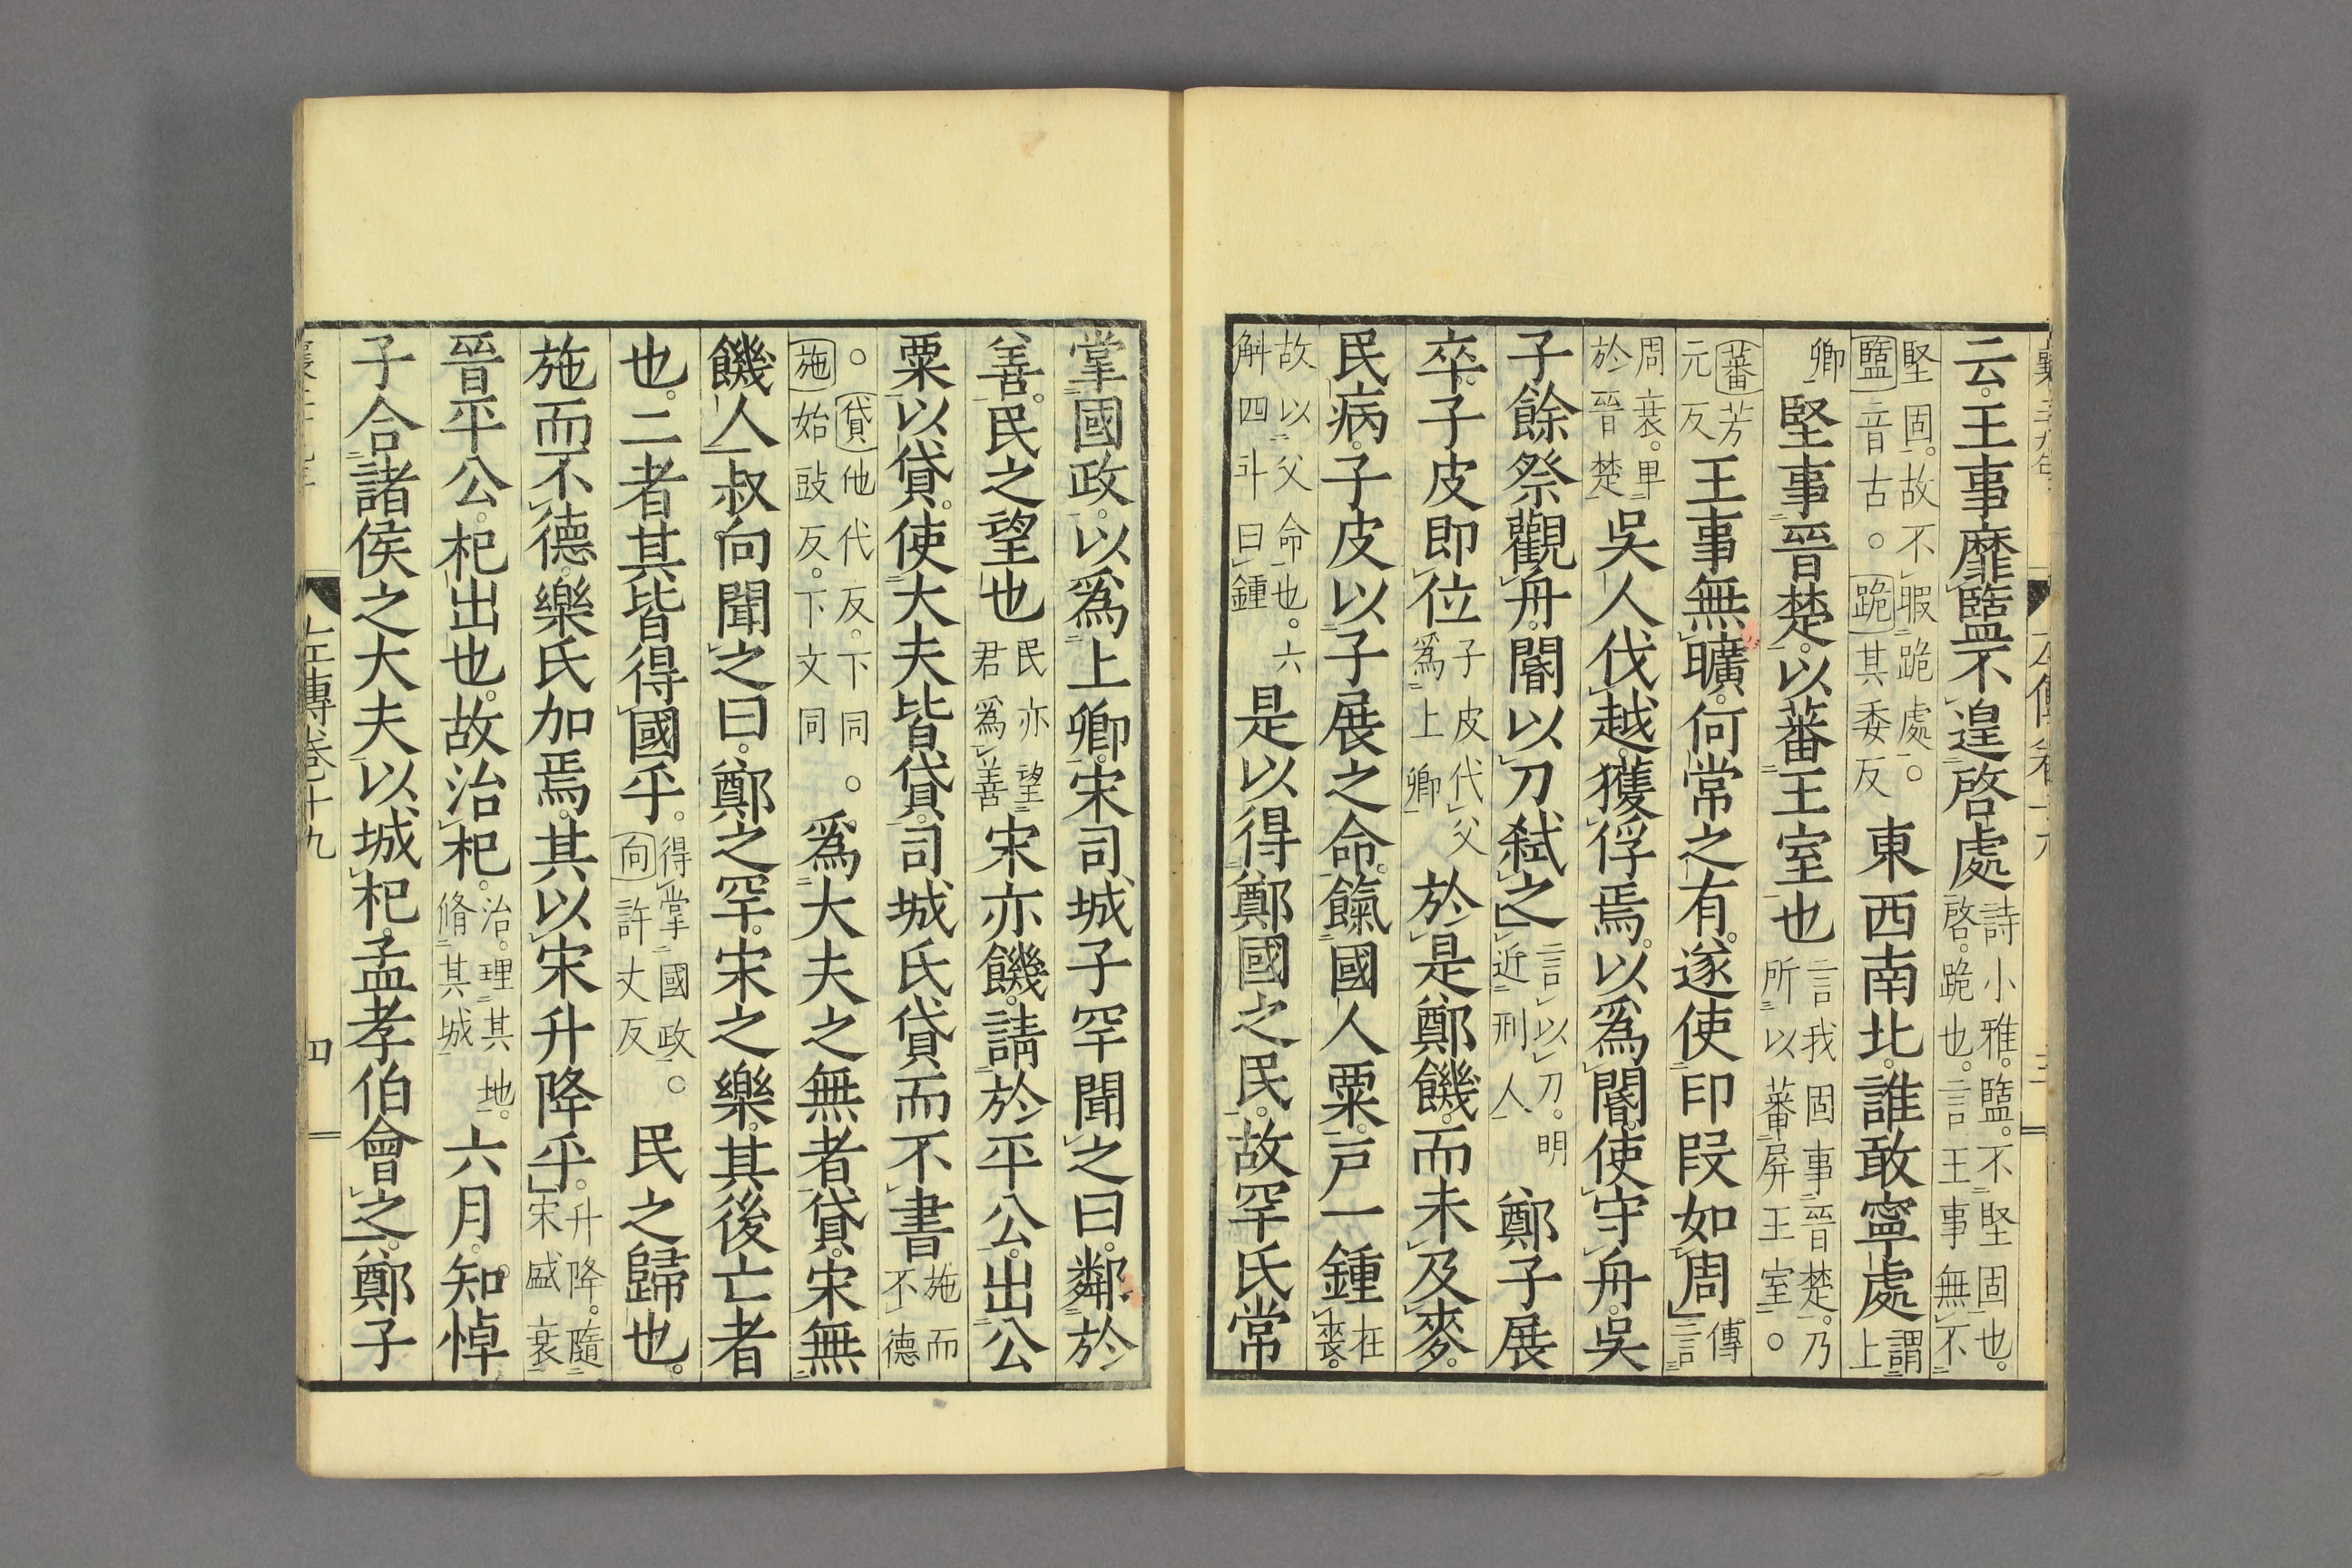 云。王事靡盬不遑啓處詩小雅。盬。不堅固也。啓。跪也。言王事無不
堅固。故不暇跪處。○盬音古。○跪其委反東西南北。誰敢寧處謂上
卿堅事晉楚。以蕃王室也言我固事晉楚。乃所以蕃屏王室。○
蕃芳元反王事無曠。何常之有。遂使印段如周傳言
周衰。卑於晉楚吳人伐越。獲俘焉。以爲閽。使守舟。吳
子餘祭觀舟。閽以刀弑之言以刀。明近刑人鄭子展
卒。子皮即位子皮代父爲上卿於是鄭饑。而未及麥。
民病。子皮以子展之命。餼國人粟。戸一鍾在喪。
故以父命也。六斛四斗曰鍾是以得鄭國之民。故罕氏常
掌國政。以爲上卿。宋司城子罕聞之曰。鄰於
善。民之望也民亦望君爲善宋亦饑。請於平公。出公
粟以貸。使大夫皆貸。司城氏貸而不書施而不德
○貸他代反。下同○施始豉反。下文同爲大夫之無者貸。宋無
饑人叔向聞之曰。鄭之罕。宋之樂。其後亡者
也。二者其皆得國乎。得掌國政。○向許丈反民之歸也。
施而不德。樂氏加焉。其以宋升降乎。升降。隨宋盛衰
晉平公。杞出也。故治杞。治。理其地。脩其城六月。知悼
子合諸侯之大夫。以城杞。孟孝伯會之。鄭子
左傳卷十九 四